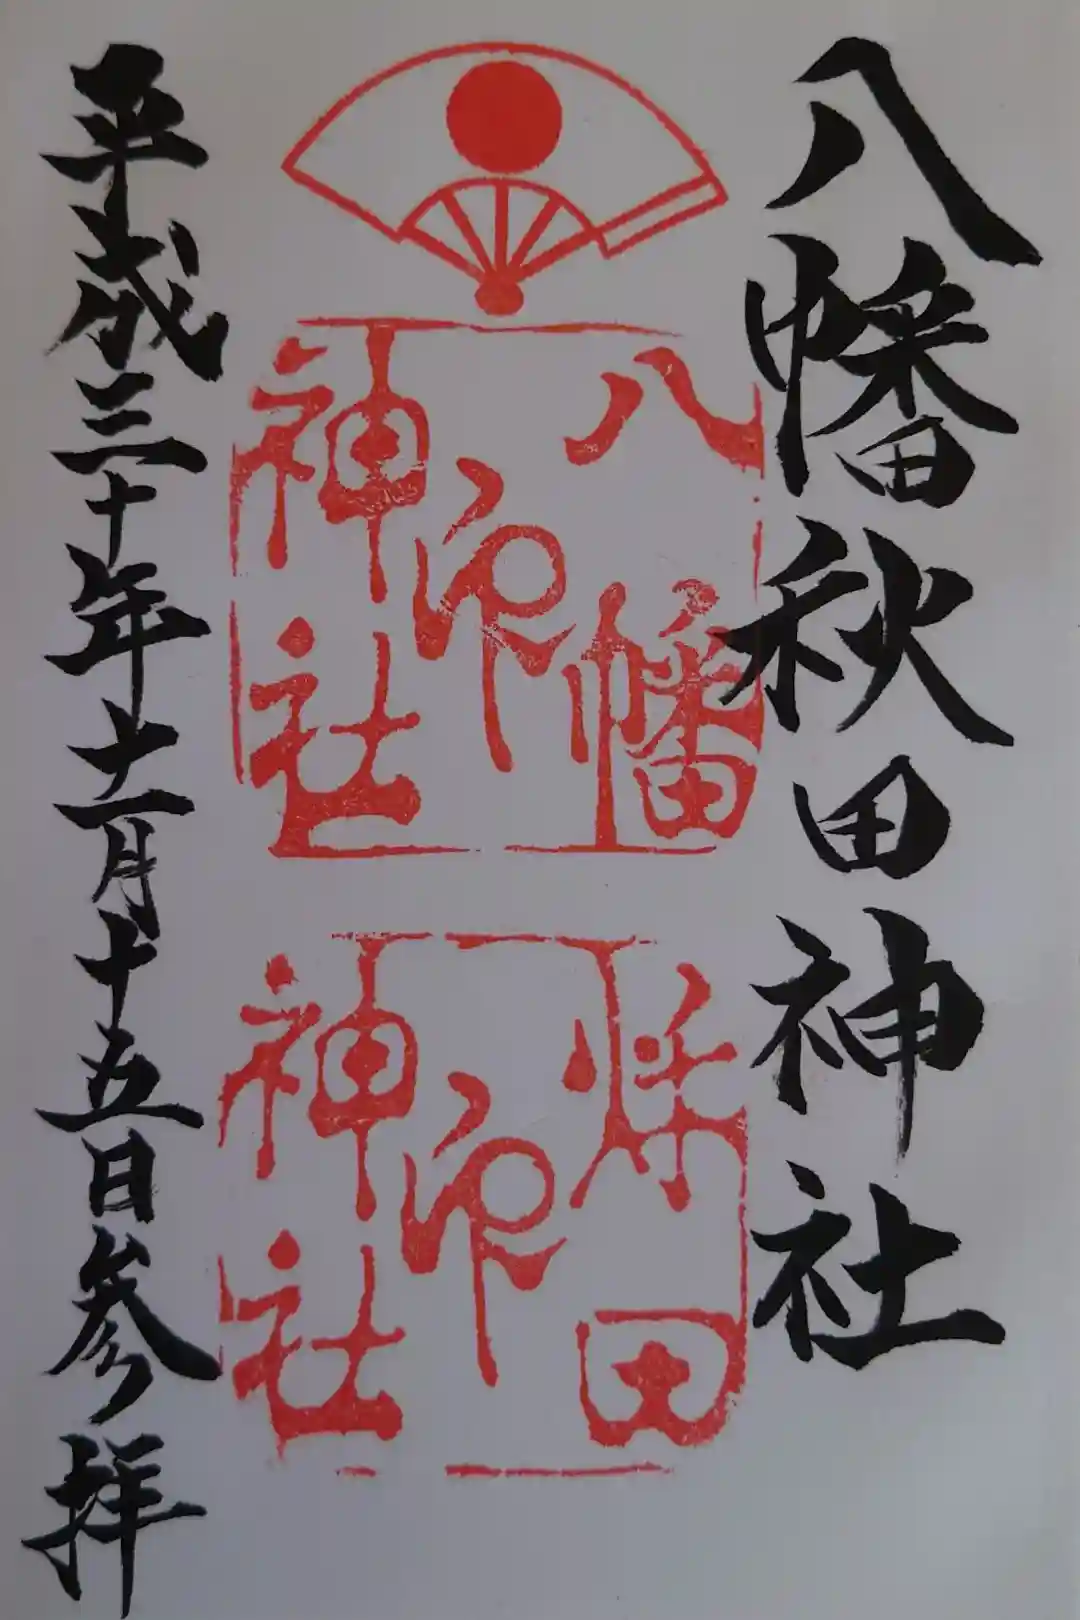 八幡秋田神社
八幡
印
神社
秌田
印
神社
平成三十年十一月十五日参拝